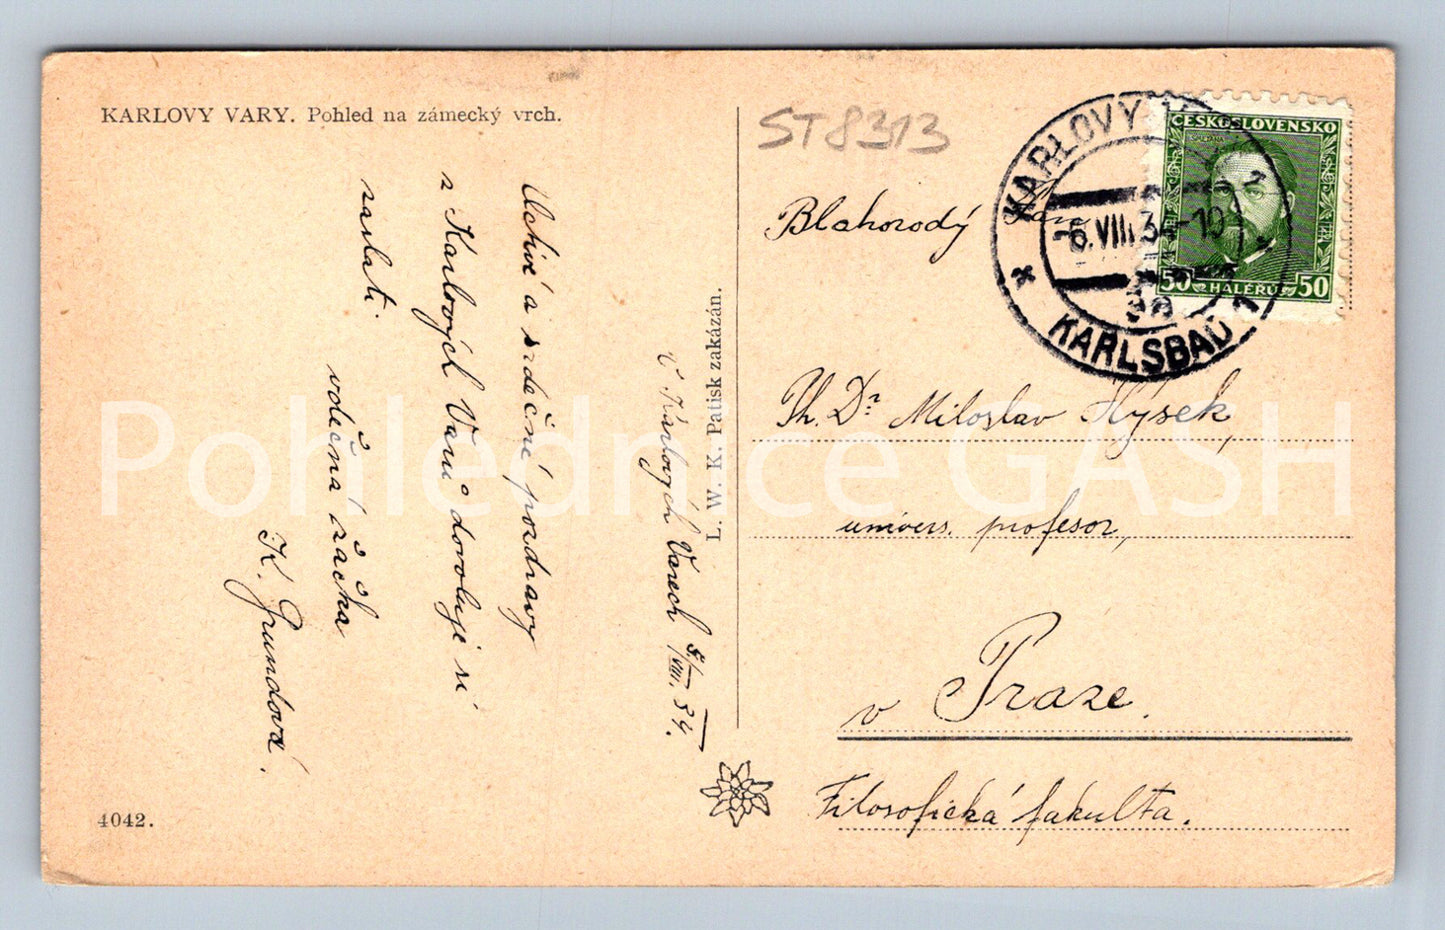 KARLOVY VARY. Pohled na zámecký vrch.
ST8313
Uctivé a srdečné pozdravy
z Karlových Varů dovoluje si
zaslati
vděčná žačka
K. Grundová.
V Karlových Varech 5/VIII. 34.
L. W. K. Patisk zakázán.
4042.
KARLOVY
6.VIII.34-10
KARLSBAD 1
ČESKOSLOVENSKO
SMETANA
50 HALÉŘŮ 50
Blahorodý Pan
Ph. Dr. Miloslav Hýsek,
univers. profesor,
v Praze.
Filosofická fakulta.
Pohlednice GASH